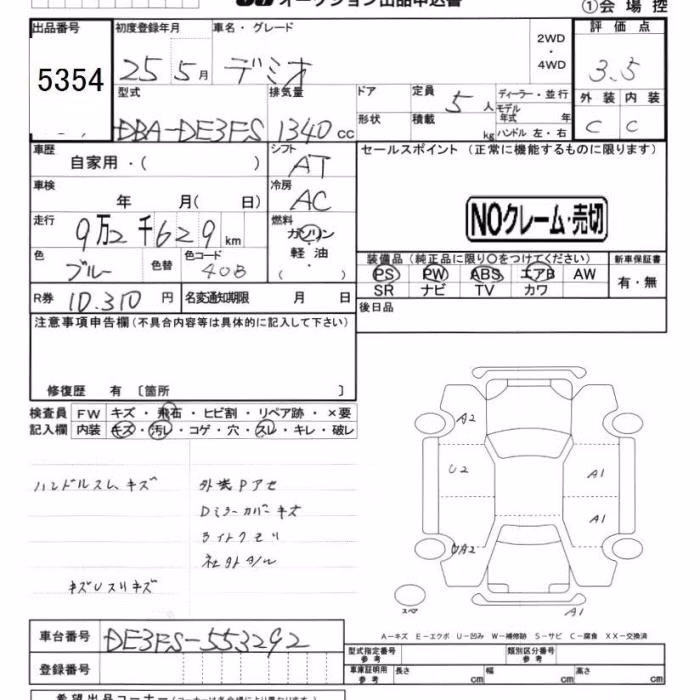 オークション出品申込書
①会場控
出品番号 初度登録年月 車名・グレード 2WD・4WD 評価点
5354 25年5月 デミオ 3.5
型式 排気量 ドア 定員 5人 ディーラー・並行 外装 内装
DBA-DE3FS 1340cc 形状 積載 kg モデル年式 年 ハンドル 左・右 C C
車歴 自家用・( ) シフト AT セールスポイント (正常に機能するものに限ります)
車検 年 月( 日) 冷房 AC
NOクレーム・売切
走行 9万2千629km 燃料 ガソリン・軽油・( )
色 ブルー 色替 色コード 40B
装備品(純正品に限り○をつけてください) 新車保証書
PS PW ABS エアB AW 有・無
SR ナビ TV カワ
R券 10,310円 名変通知期限 月 日 後日品
注意事項申告欄(不具合内容等は具体的に記入して下さい)
修復歴 有 〔箇所 〕
検査員 FW キズ・飛石・ヒビ割・リペア跡・×要
記入欄 内装 キズ・汚レ・コゲ・穴・スレ・キレ・破レ
ハンドルスレ、キズ
外装Pアセ
Dミラーカバーキズ
ライトクモリ
社外アルミ
キズUスリキズ
A2
U2
A1
A1
UA2
スペ
A1
A-キズ E-エクボ U-凹み W-補修跡 S-サビ C-腐食 XX-交換済
車台番号 DE3FS-553292
型式指定番号 参考 類別区分番号 参考
登録番号 車庫証明用 参考 長さ cm 幅 cm 高さ cm
希望出品コーナー